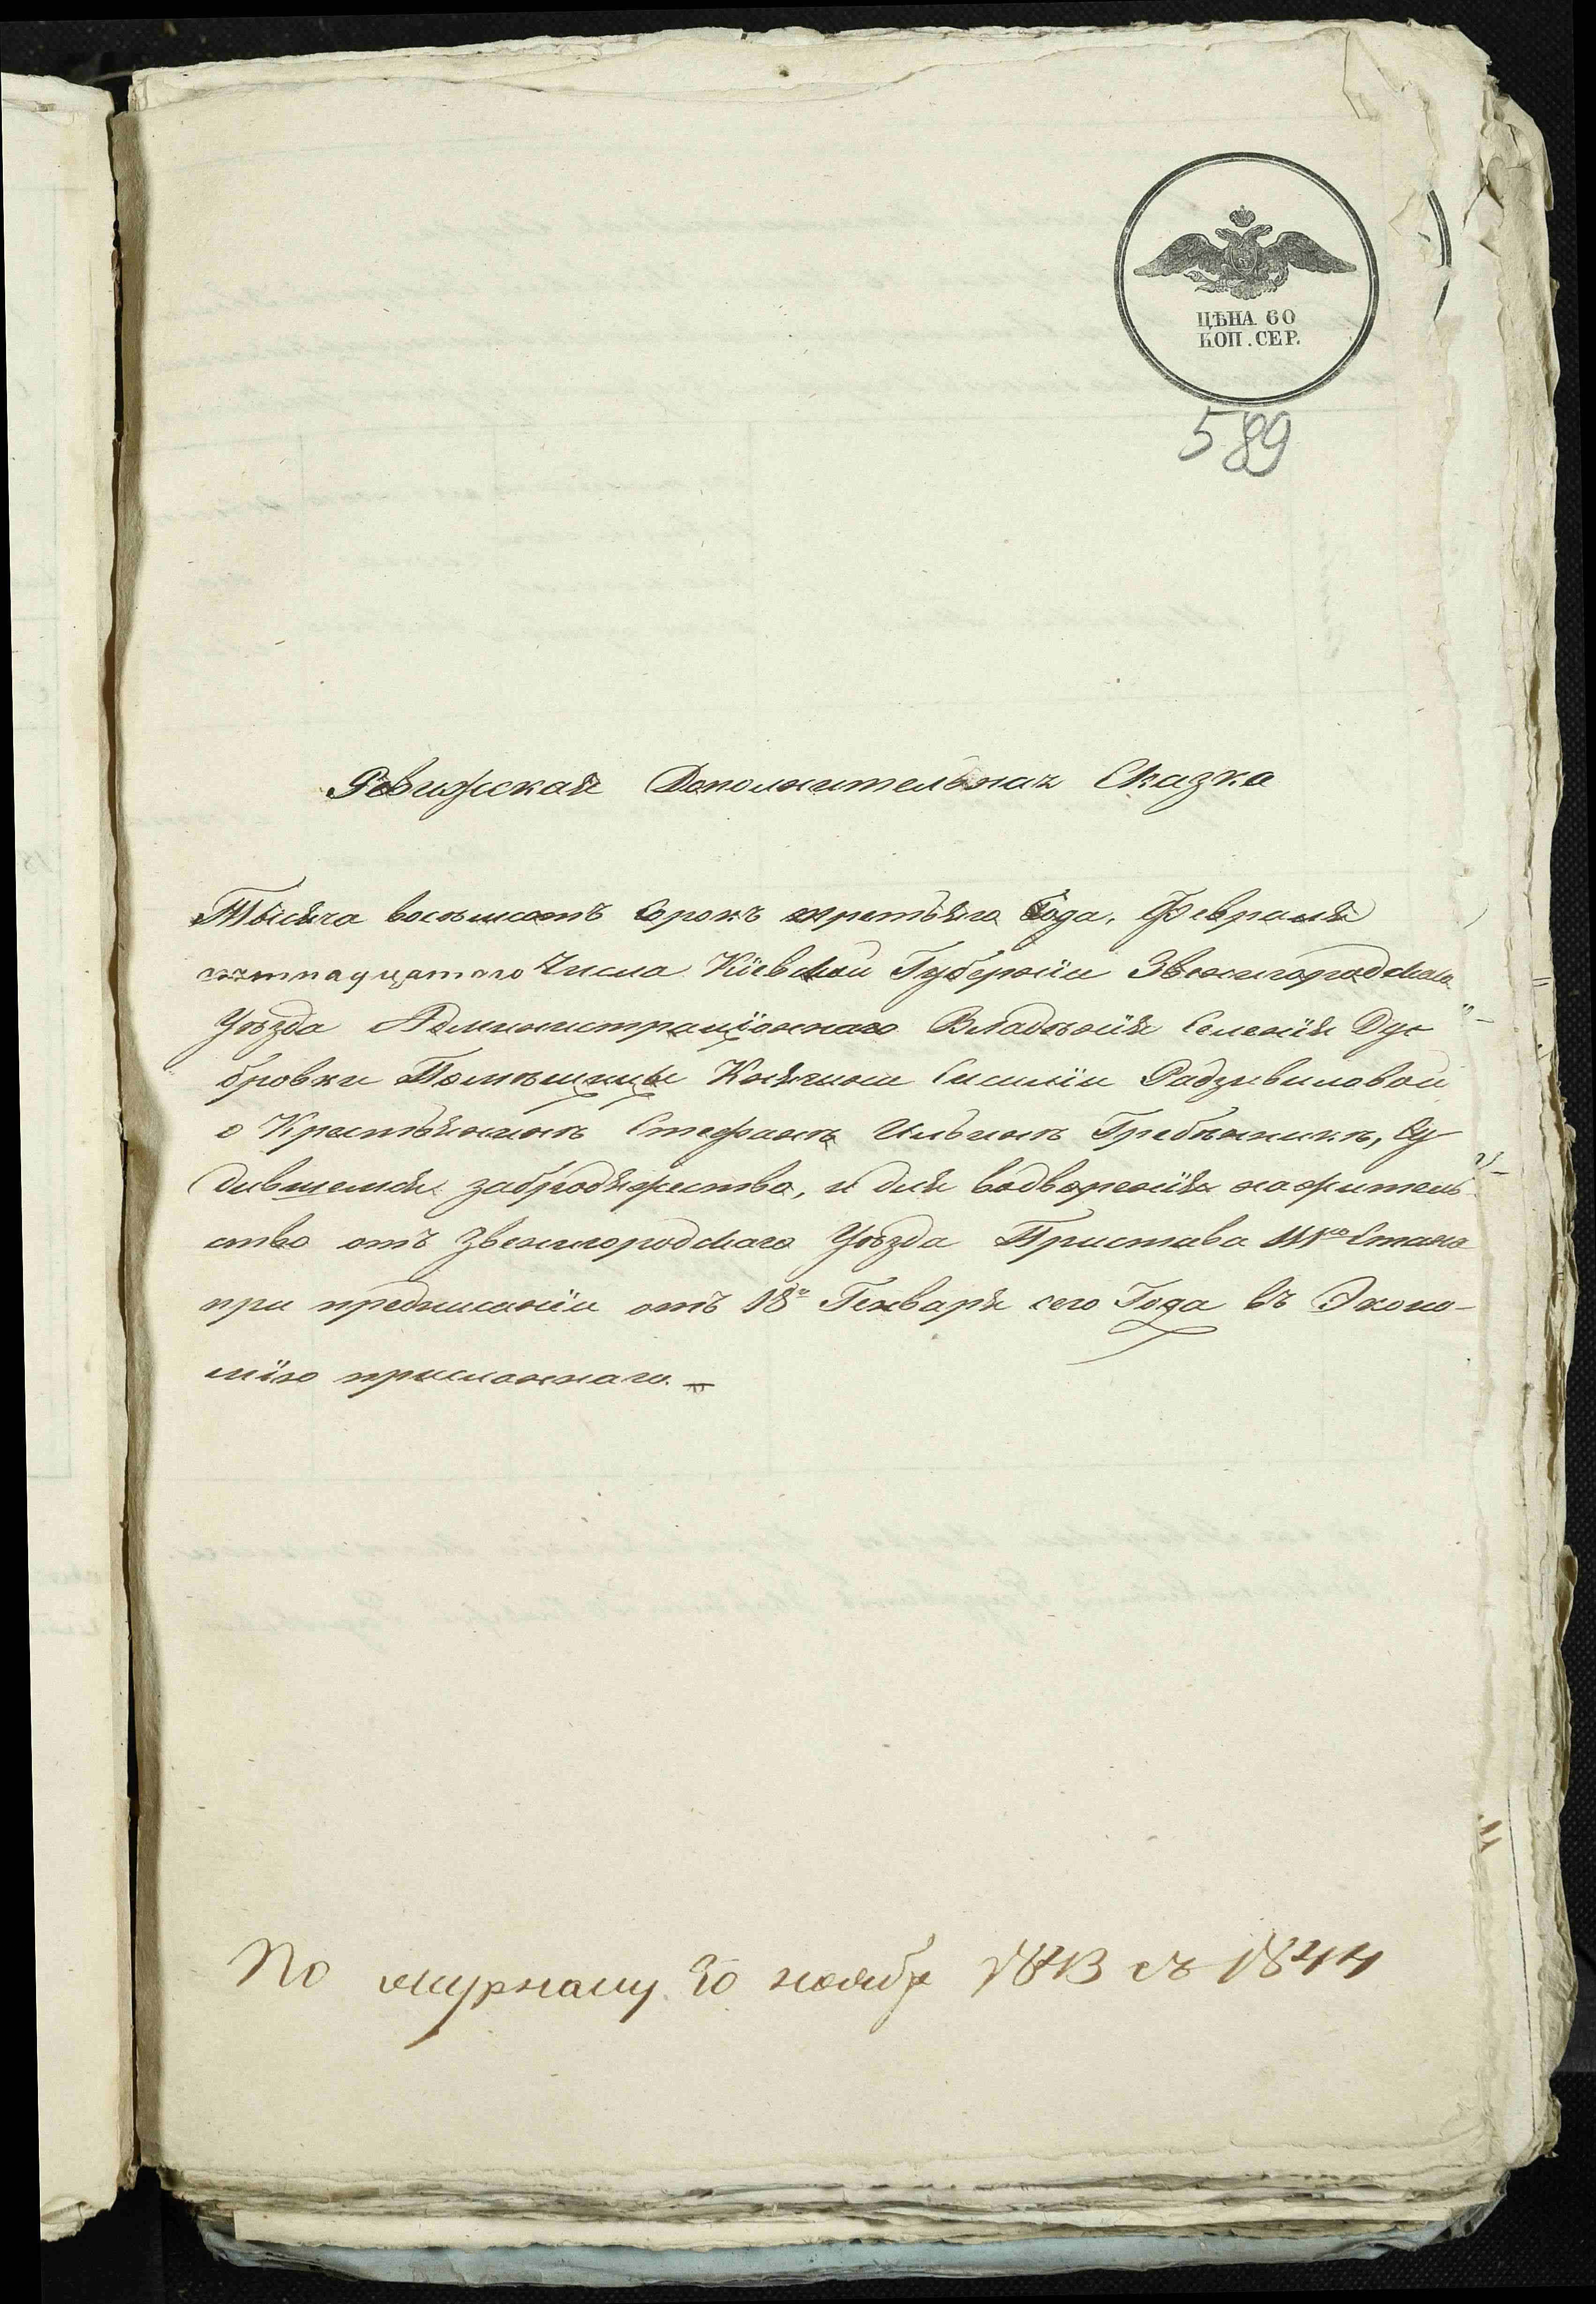 ЦѢНА 60
КОП. СЕР.
589
Ревижская Дополнительная Сказка
Тысяча восемьсотъ Сорокъ третьяго Года, Февраля
пятнадцатого Числа Кіевской Губерніи Звенигородскаго
Уѣзда Администраціоннаго Владѣнія Селенія Ду-
бровки Помѣщицы Княгини Сисиліи Радзивиловой
о Крестьянинѣ Стефанѣ Ильинѣ Гребѣнникѣ, Су-
дившемся забродяжество, и для водворенія нажитель-
ство отъ Звенигородскаго Уѣзда Пристава III го Стана
при предписаніи отъ 18 го Генваря сего Года въ Эконо-
мію присланнаго.
По журналу 30 ноябр 1843 съ 1844